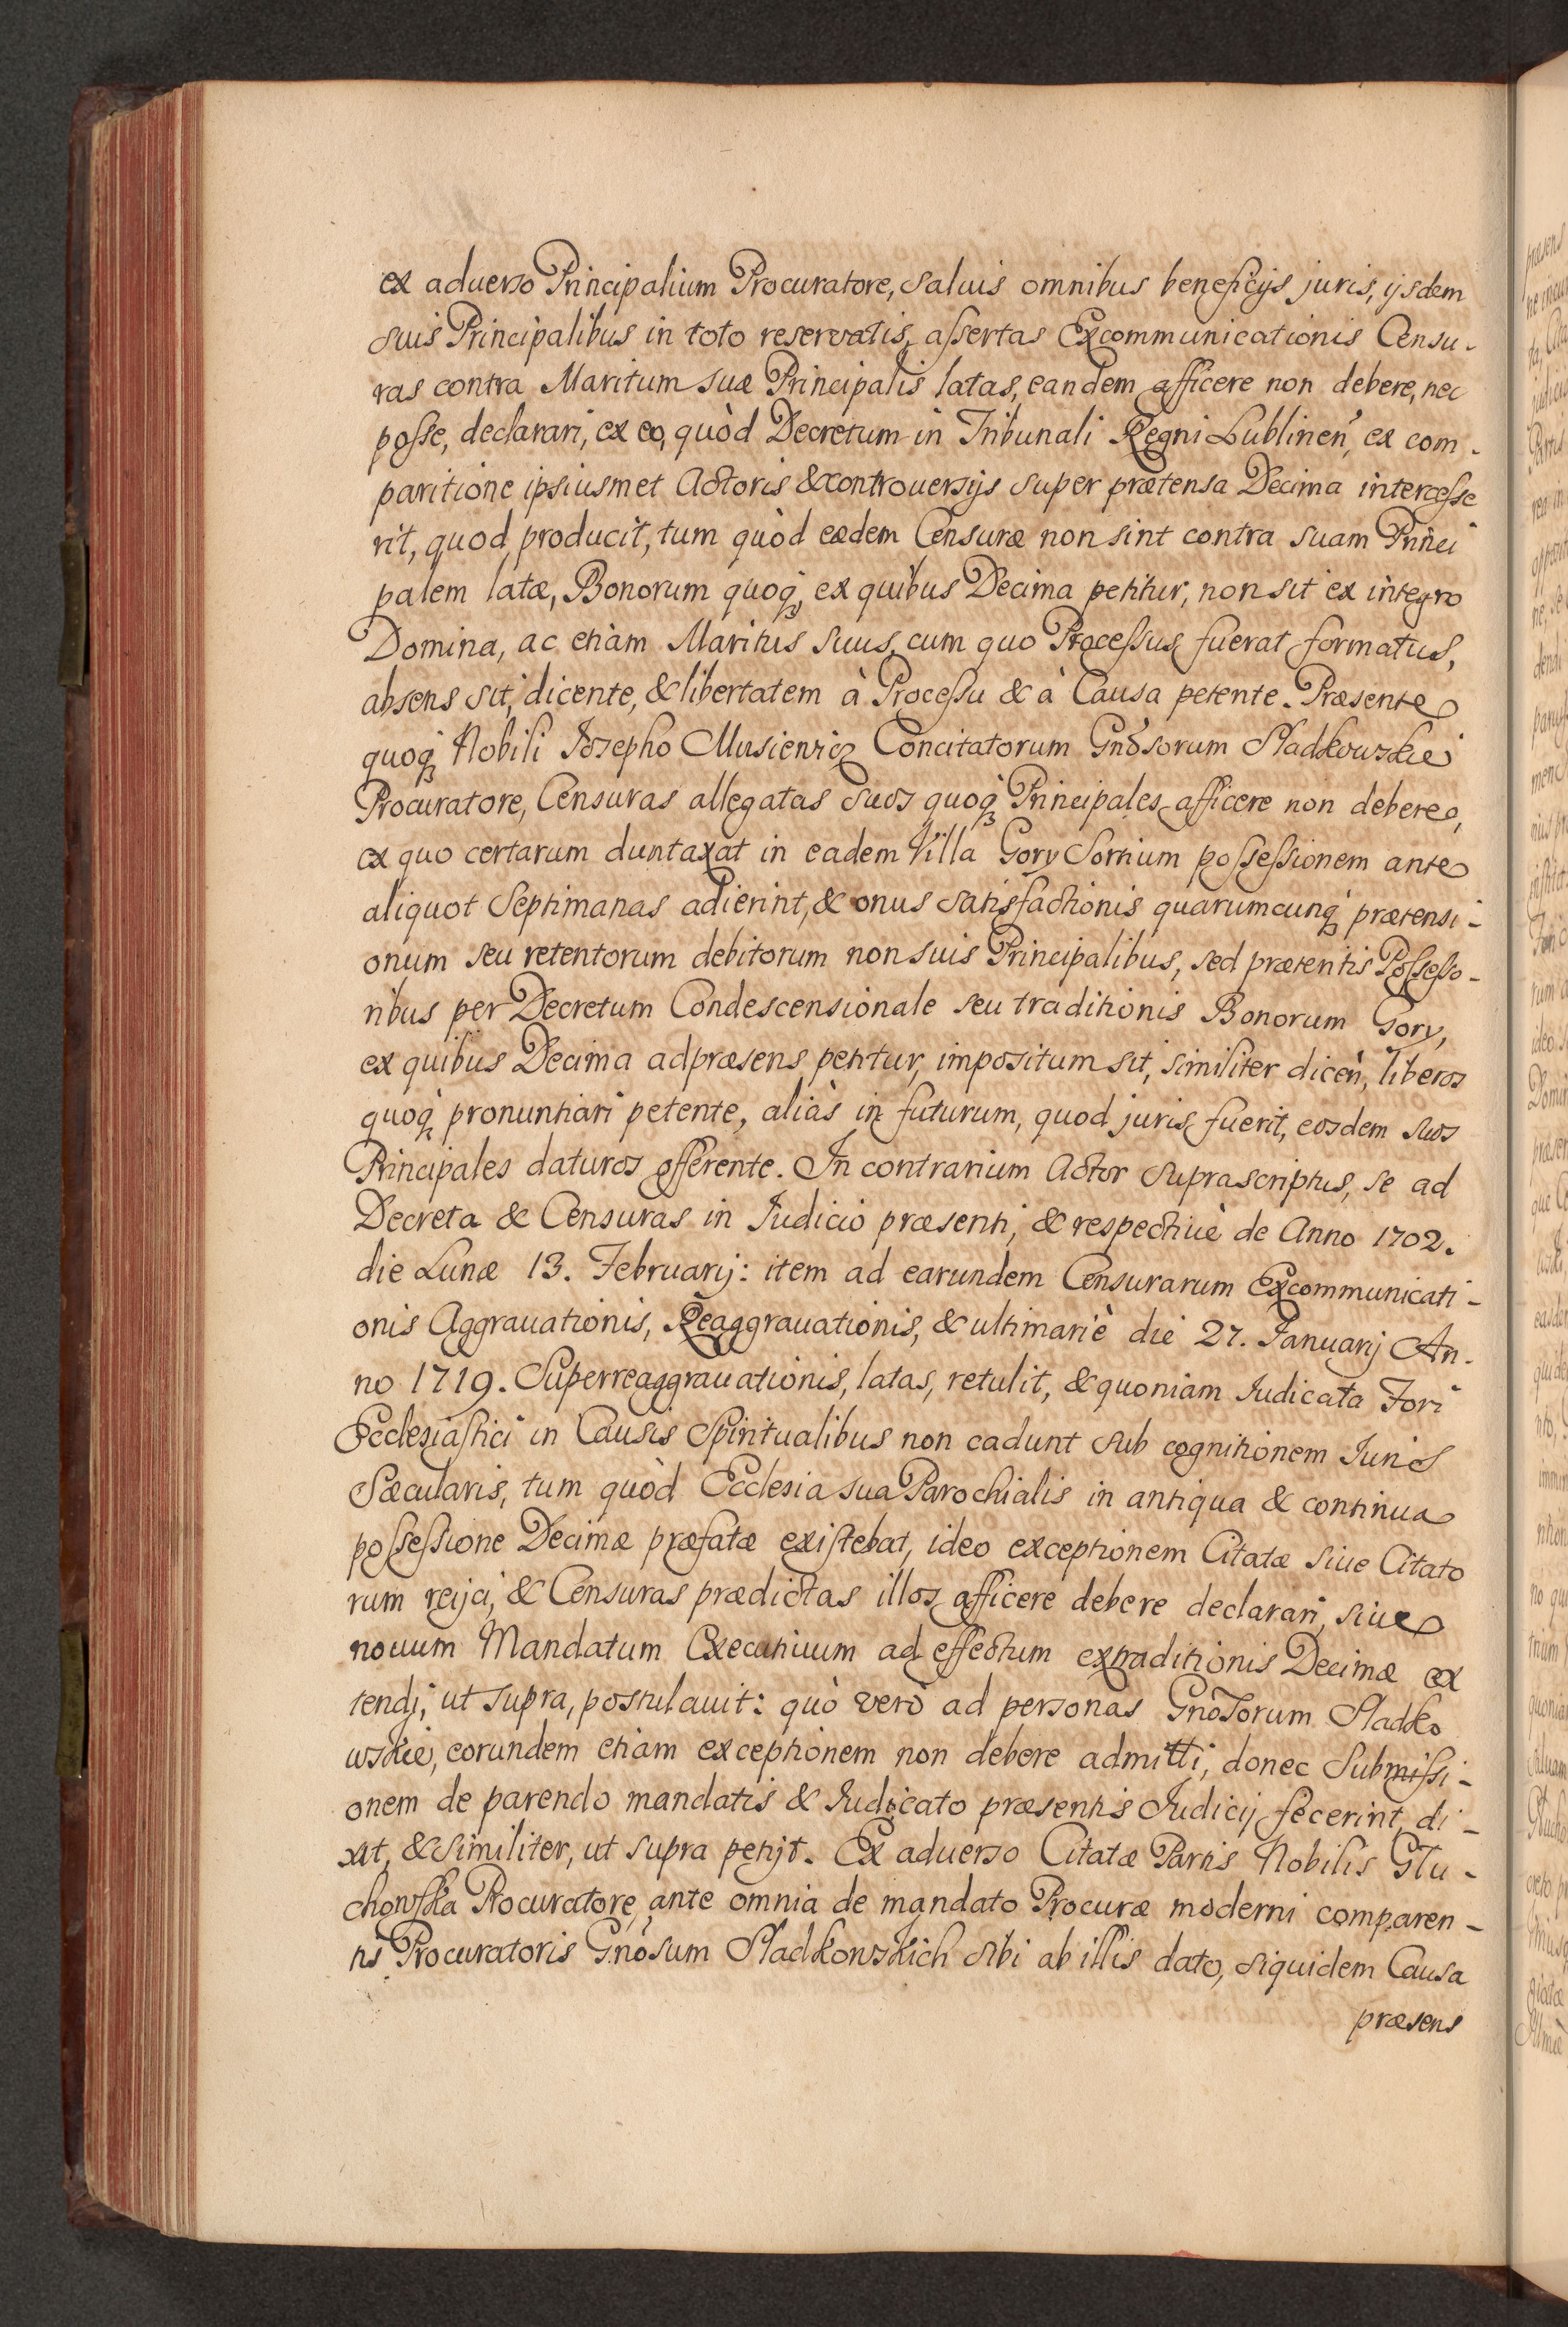 ex aduerso Principalium Procuratore, saluis omnibus beneficijs juris, ijsdem
suis Principalibus in toto reservatis, assertas Excommunicationis Censu-
ras contra Maritum suæ Principalis latas, eandem afficere non debere, nec
posse, declarari, ex eo, quòd Decretum in Tribunali Regni Lublineñ, ex com-
paritione ipsiusmet Actoris & controuersijs super prætensa Decima intercesse
rit, quod producit, tum quòd eædem Censuræ non sint contra suam Princi
palem latæ, Bonorum quoq́, ex quibus Decima petitur, non sit ex integro
Domina, ac etiàm Maritus suus, cum quo Processus fuerat formatus,
absens sit, dicente, & libertatem à Processu & à Causa petente. Præsente
quoq́ Nobili Josepho Musiewicz Concitatorum Gnosorum Sladkowskie
Procuratore, Censuras allegatas suos quoq́ Principales afficere non debere,
ex quo certarum duntaxat in eadem Villa Gory Sortium possessionem ante
aliquot Septimanas adierint, & onus satisfactionis quarumcunq́ prætensi-
onum seu retentorum debitorum non suis Principalibus, sed præteritis Possesso-
ribus per Decretum Condescensionale seu traditionis Bonorum Gory,
ex quibus Decima adpræsens petitur, impositum sit, similiter diceñ, liberos
quoq́ pronuntiari petente, aliàs in futurum, quod juris fuerit, eosdem suos
Principales daturos offerente. In contrarium Actor suprascriptus, se ad
Decreta & Censuras in Judicio præsenti, & respectiuè de Anno 1702.
die Lunæ 13. Februarij: item ad earundem Censurarum Excommunicati-
onis Aggrauationis, Reaggrauationis, & ultimariè die 27. Januarij An-
no 1719. Superreaggrauationis, latas, retulit, & quoniam Iudicata Fori
Ecclesiastici in Causis Spiritualibus non cadunt sub cognitionem Iuris
Sæcularis, tum quòd Ecclesia sua Parochialis in antiqua & continua
possessione Decimæ præfatæ existebat, ideo exceptionem Citatæ siue Citato
rum reijci, & Censuras prædictas illos afficere debere declarari, siue
nouum Mandatum Executiuum ad effectum extraditionis Decimæ ex
tendi, ut supra, postulauit: quò verò ad personas Gnosorum Sladko
wskie, eorundem etiam exceptionem non debere admitti, donec Submissi-
onem de parendo mandatis & Iudicato præsentis Judicij fecerint, di-
xit, & similiter, ut supra petijt. Ex aduerso Citatæ Partis Nobilis Glu-
chowska Procuratore, ante omnia de mandato Procuræ moderni comparen-
tis Procuratoris Gnosum Sladkowskich sibi ab illis dato, siquidem Causa
præsens